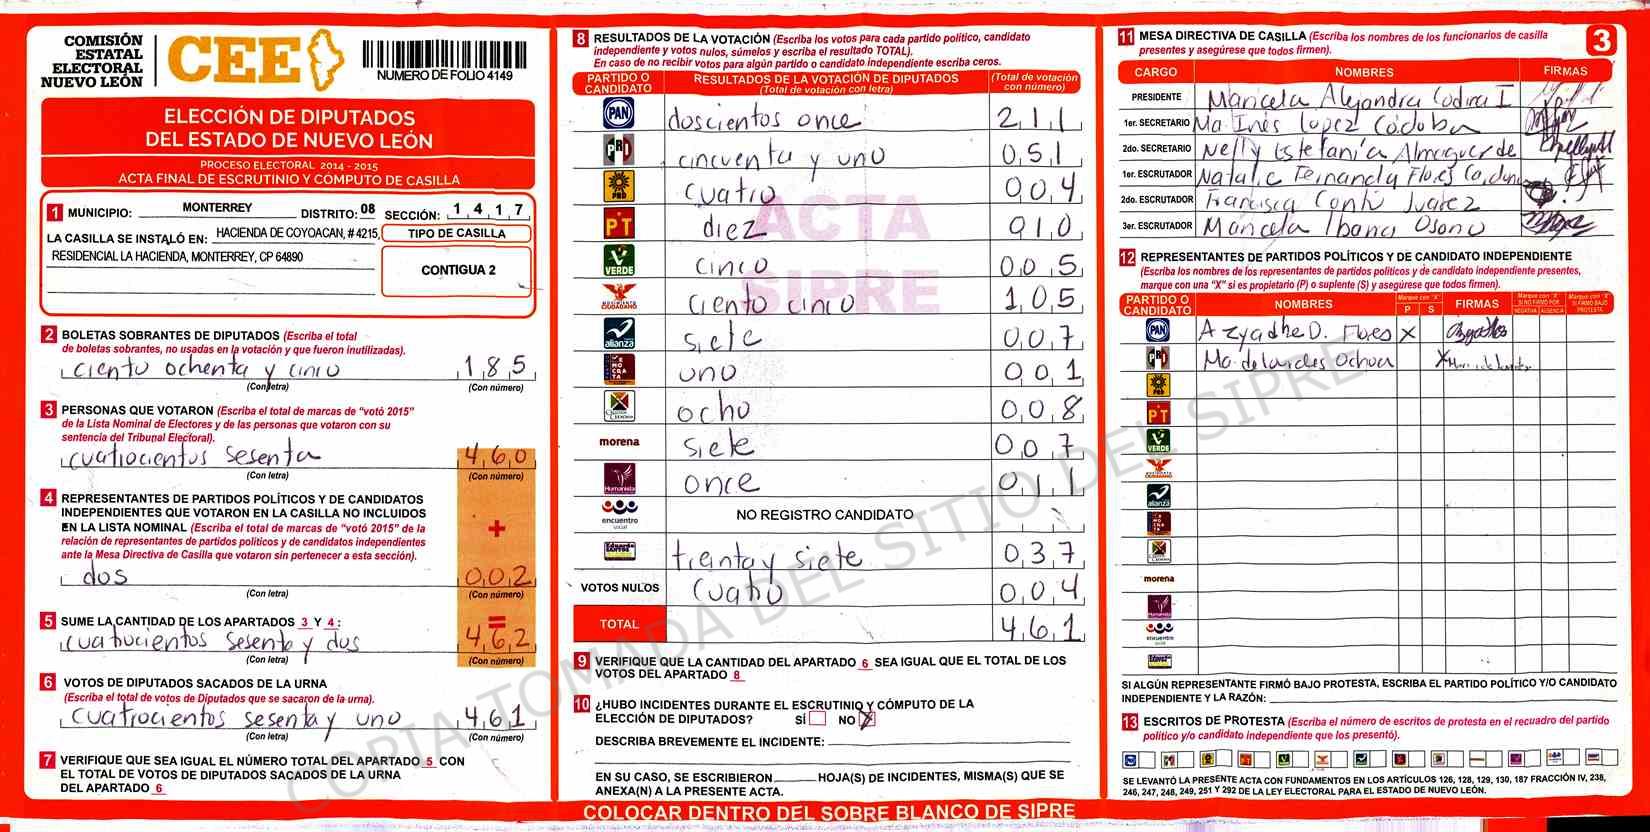 COMISIÓN
ESTATAL
ELECTORAL
NUEVO LEÓN
CEE
NUMERO DE FOLIO 4149
ELECCIÓN DE DIPUTADOS
DEL ESTADO DE NUEVO LEÓN
PROCESO ELECTORAL 2014 - 2015
ACTA FINAL DE ESCRUTINIO Y CÓMPUTO DE CASILLA
1 MUNICIPIO: MONTERREY DISTRITO: 08 SECCIÓN: 1 4 1 7
LA CASILLA SE INSTALÓ EN: HACIENDA DE COYOACAN, # 4215,
RESIDENCIAL LA HACIENDA, MONTERREY, CP 64890
TIPO DE CASILLA
CONTIGUA 2
2 BOLETAS SOBRANTES DE DIPUTADOS (Escriba el total
de boletas sobrantes, no usadas en la votación y que fueron inutilizadas).
ciento ochenta y cinco 1 8 5
(Con letra) (Con número)
3 PERSONAS QUE VOTARON (Escriba el total de marcas de "votó 2015"
de la Lista Nominal de Electores y de las personas que votaron con su
sentencia del Tribunal Electoral).
cuatrocientos sesenta 4 6 0
(Con letra) (Con número)
4 REPRESENTANTES DE PARTIDOS POLÍTICOS Y DE CANDIDATOS
INDEPENDIENTES QUE VOTARON EN LA CASILLA NO INCLUIDOS
EN LA LISTA NOMINAL (Escriba el total de marcas de "votó 2015" de la
relación de representantes de partidos políticos y de candidatos independientes
ante la Mesa Directiva de Casilla que votaron sin pertenecer a esta sección).
+
dos 0 0 2
(Con letra) (Con número)
5 SUME LA CANTIDAD DE LOS APARTADOS 3 Y 4:
=
cuatrocientos sesenta y dos 4 6 2
(Con letra) (Con número)
6 VOTOS DE DIPUTADOS SACADOS DE LA URNA
(Escriba el total de votos de Diputados que se sacaron de la urna).
cuatrocientos sesenta y uno 4 6 1
(Con letra) (Con número)
7 VERIFIQUE QUE SEA IGUAL EL NÚMERO TOTAL DEL APARTADO 5 CON
EL TOTAL DE VOTOS DE DIPUTADOS SACADOS DE LA URNA
DEL APARTADO 6
8 RESULTADOS DE LA VOTACIÓN (Escriba los votos para cada partido político, candidato
independiente y votos nulos, súmelos y escriba el resultado TOTAL).
En caso de no recibir votos para algún partido o candidato independiente escriba ceros.
PARTIDO O CANDIDATO RESULTADOS DE LA VOTACIÓN DE DIPUTADOS (Total de votación con letra) (Total de votación con número)
PAN doscientos once 2 1 1
PRI cincuenta y uno 0 5 1
PRD cuatro 0 0 4
PT diez 0 1 0
VERDE cinco 0 0 5
MOVIMIENTO CIUDADANO ciento cinco 1 0 5
alianza siete 0 0 7
DEMOCRATA uno 0 0 1
ocho 0 0 8
morena siete 0 0 7
Humanista once 0 1 1
encuentro social NO REGISTRO CANDIDATO
treinta y siete 0 3 7
VOTOS NULOS cuatro 0 0 4
TOTAL 4 6 1
ACTA
SIPRE
9 VERIFIQUE QUE LA CANTIDAD DEL APARTADO 6 SEA IGUAL QUE EL TOTAL DE LOS
VOTOS DEL APARTADO 8
10 ¿HUBO INCIDENTES DURANTE EL ESCRUTINIO Y CÓMPUTO DE LA
ELECCIÓN DE DIPUTADOS? SÍ NO X
DESCRIBA BREVEMENTE EL INCIDENTE:
EN SU CASO, SE ESCRIBIERON HOJA(S) DE INCIDENTES, MISMA(S) QUE SE
ANEXA(N) A LA PRESENTE ACTA.
COLOCAR DENTRO DEL SOBRE BLANCO DE SIPRE
11 MESA DIRECTIVA DE CASILLA (Escriba los nombres de los funcionarios de casilla
presentes y asegúrese que todos firmen).
3
CARGO NOMBRES FIRMAS
PRESIDENTE Maricela Alejandra I
1er. SECRETARIO Ma. Inés Lopez Córdoba
2do. SECRETARIO Nelly Estefanía Almaguer de
1er. ESCRUTADOR Natalie Fernanda Flores
2do. ESCRUTADOR Francisca Cantú Juarez
3er. ESCRUTADOR Maricela
12 REPRESENTANTES DE PARTIDOS POLÍTICOS Y DE CANDIDATO INDEPENDIENTE
(Escriba los nombres de los representantes de partidos políticos y de candidato independiente presentes,
marque con una "X" si es propietario (P) o suplente (S) y asegúrese que todos firmen).
PARTIDO O CANDIDATO NOMBRES Marque con "X" P S FIRMAS Marque con "X" SI NO FIRMÓ POR NEGATIVA AUSENCIA Marque con "X" SI FIRMÓ BAJO PROTESTA
PAN Azyadhe D. Flores X
PRI Ma. de Lourdes Ochoa X
PRD
PT
VERDE
alianza
morena
Humanista
encuentro
SI ALGÚN REPRESENTANTE FIRMÓ BAJO PROTESTA, ESCRIBA EL PARTIDO POLÍTICO Y/O CANDIDATO
INDEPENDIENTE Y LA RAZÓN:
13 ESCRITOS DE PROTESTA (Escriba el número de escritos de protesta en el recuadro del partido
político y/o candidato independiente que los presentó).
SE LEVANTÓ LA PRESENTE ACTA CON FUNDAMENTOS EN LOS ARTÍCULOS 126, 128, 129, 130, 187 FRACCIÓN IV, 238,
246, 247, 248, 249, 251 Y 292 DE LA LEY ELECTORAL PARA EL ESTADO DE NUEVO LEÓN.
COPIA TOMADA DEL SITIO DEL SIPRE